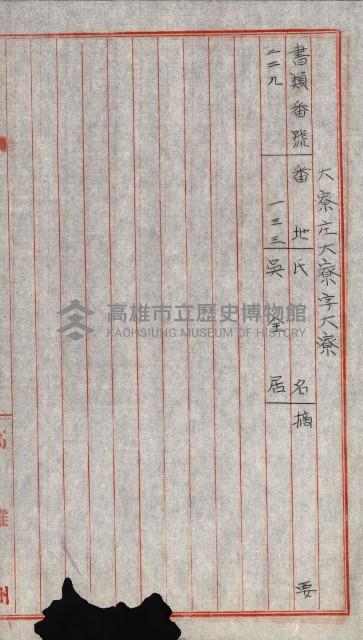 大寮庄大寮字大寮
書類番號 番地 氏名 摘要
二二九 一三三 吳全居
高雄市立歷史博物館
KAOHSIUNG MUSEUM OF HISTORY
高雄州